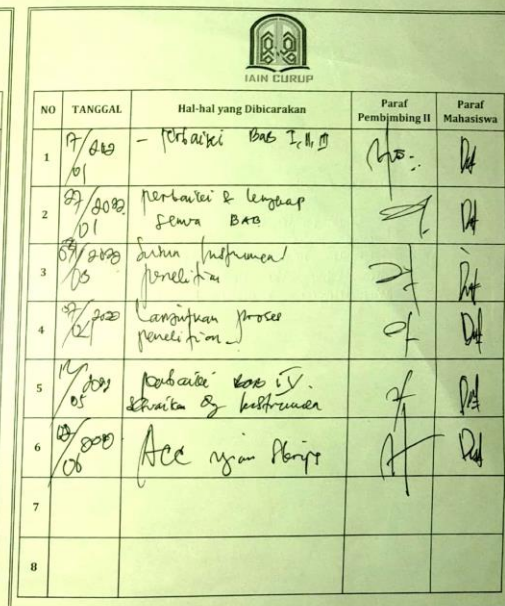 IAIN CURUP
NO TANGGAL Hal-hal yang Dibicarakan Paraf Pembimbing II Paraf Mahasiswa
1 17/01 - perbaiki Bab I, II, III
2 27/01 perbaiki & lengkap
semua BAB
3 Susun Instrumen
penelitian
4 Lanjutkan proses
penelitian
5 perbaiki BAB IV.
Sesuaikan dg Instrumen
6 Acc ujian Skripsi
7
8